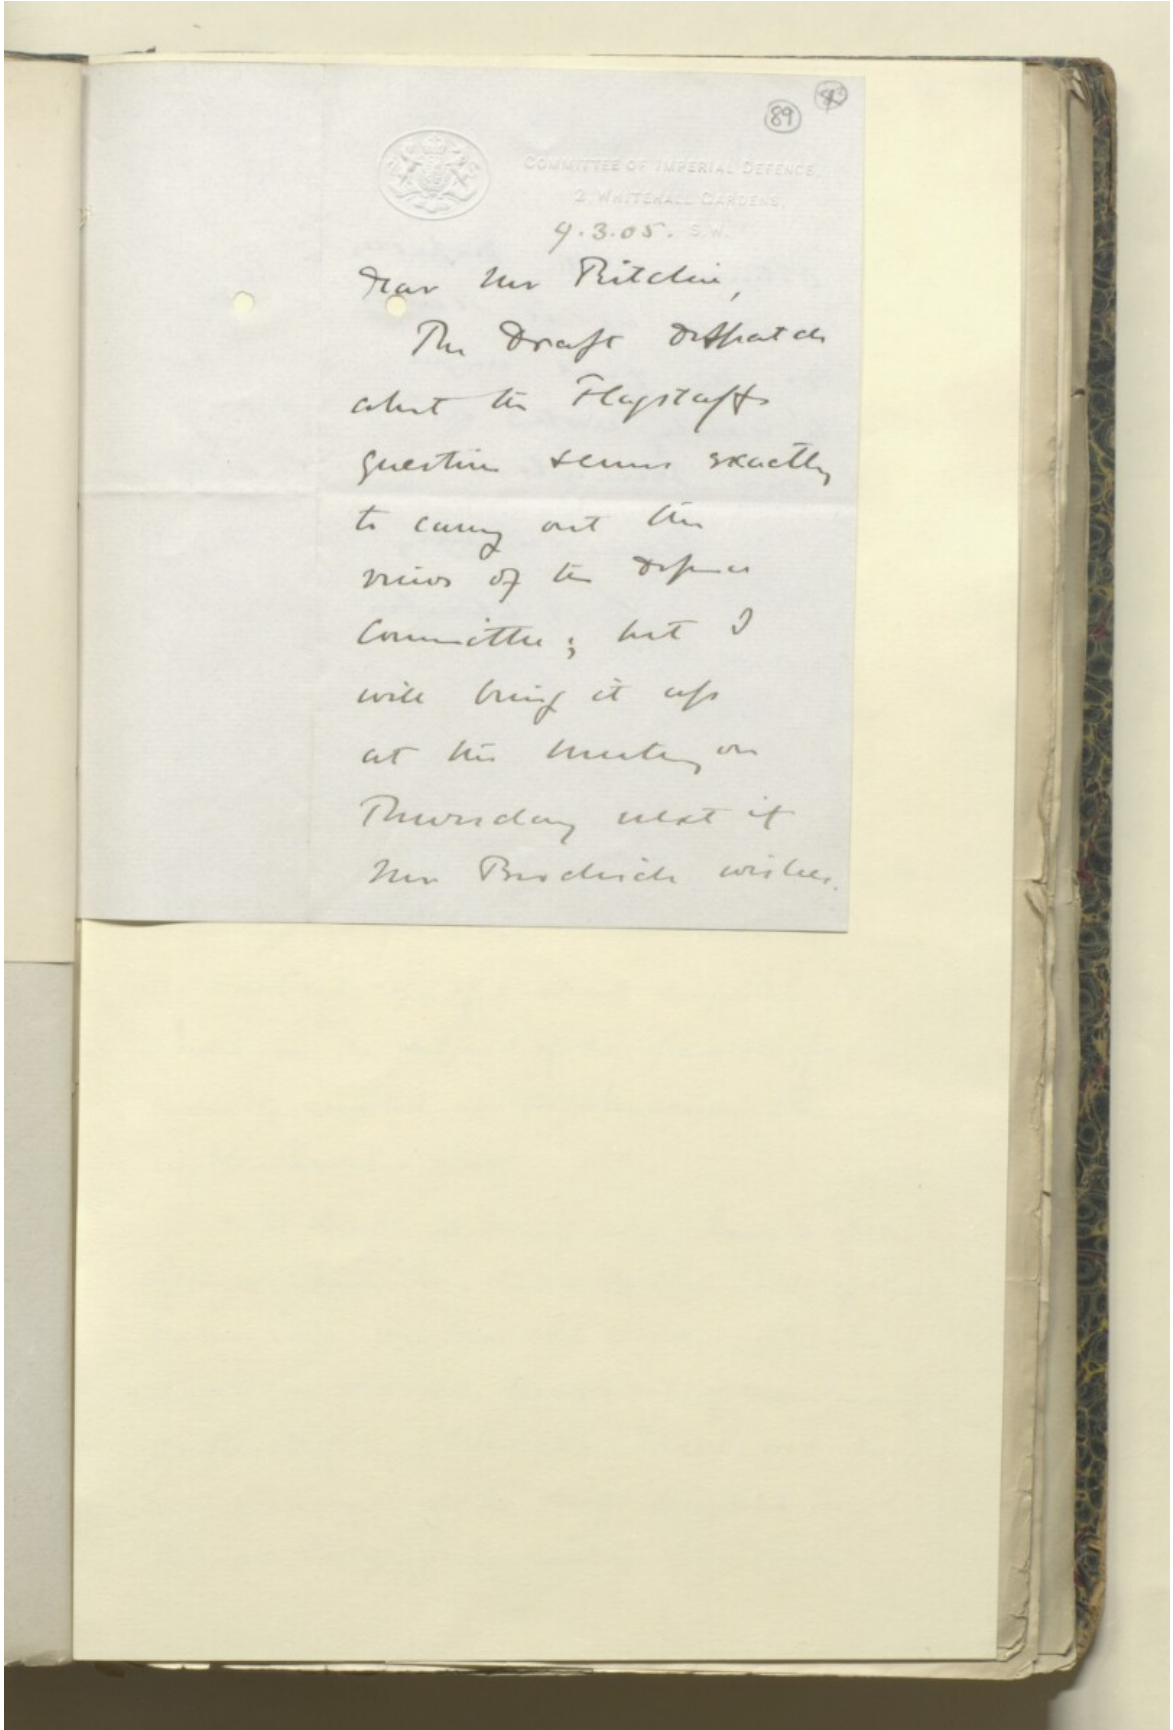 89
COMMITTEE OF IMPERIAL DEFENCE,
2, WHITEHALL GARDENS,
S.W.
9.3.05.
Dear Mr Ritchie,
The Draft Despatch
about the Flagstaffs
question seems exactly
to carry out the
views of the Defence
Committee; but I
will bring it up
at the meeting on
Thursday next if
Mr Brodrick wishes.